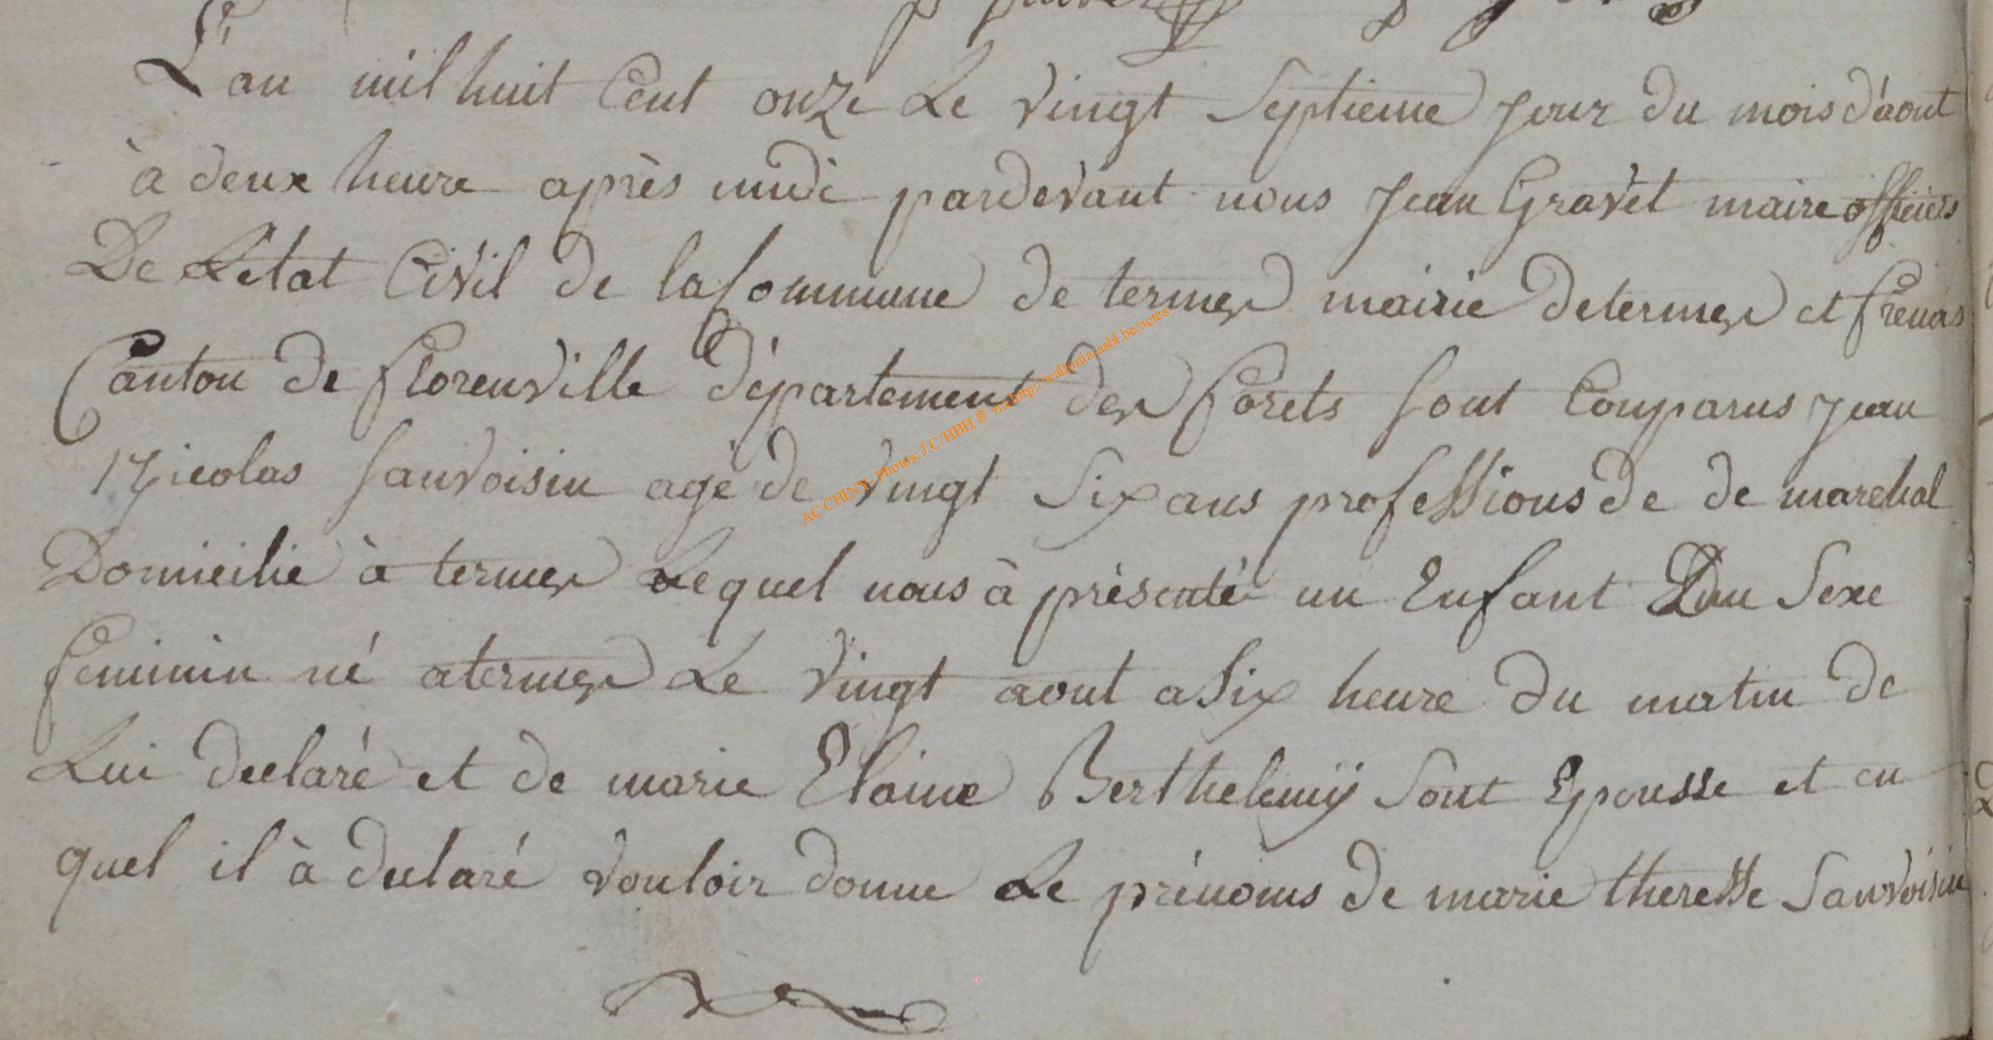 L'an mil huit Cent onze Le vingt Septieme jour du mois d'aout
à deux heure après midi pardevant nous jean Gravet maire officiers
De L'état Civil de la Commune de termes mairie determes et frenois
Canton de florenville département des forets sont Comparus jean
Nicolas Sauvoisin agé de vingt Six ans professions de de marechal
Domicilie à termes Lequel nous à présenté un Enfant Du Sexe
feminin né atermes Le vingt aout a Six heure du matin de
Lui declaré et de marie Elaine Berthelemÿ Sont Epousse et en
quel il à declaré vouloir donne Le prénoms de marie theresse Sauvoisin
AC CHINY Photos J C/HBH ® via http://wallonia-asbl.be/actes